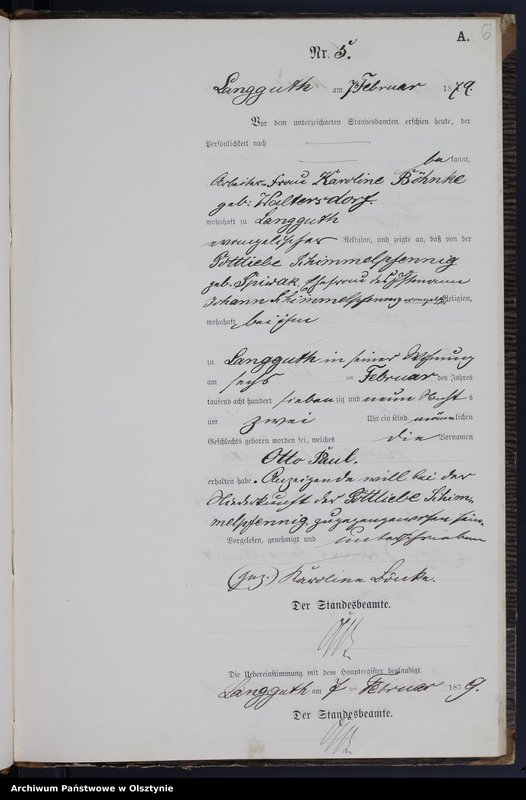 6
A.
Nr. 5.
Langguth am 7 Februar 1879.
Vor dem unterzeichneten Standesbeamten erschien heute, der
Persönlichkeit nach
bekannt,
Arbeiter-Frau Karoline Böhnke
geb. Waltersdorf.
wohnhaft zu Langguth
evangelischer Religion, und zeigte an, daß von der
Gottliebe Schimmelpfennig
geb. Spiwak, Ehefrau des
Johann Schimmelpfennig evangel. Religion,
wohnhaft bei ihm
zu Langguth in seiner Wohnung
am sechs ten Februar des Jahres
tausend acht hundert siebenzig und neun Nachts
um zwei Uhr ein Kind männlichen
Geschlechts geboren worden sei, welches die Vornamen
Otto Paul.
erhalten habe. Anzeigende will bei der
Niederkunft der Gottliebe Schim-
melpfennig zugegengewesen sein.
Vorgelesen, genehmigt und unterschrieben
(gez.) Karoline Bönke.
Der Standesbeamte.
Die Uebereinstimmung mit dem Hauptregister beglaubigt.
Langguth am 7 ten Februar 1879.
Der Standesbeamte.
Archiwum Państwowe w Olsztynie